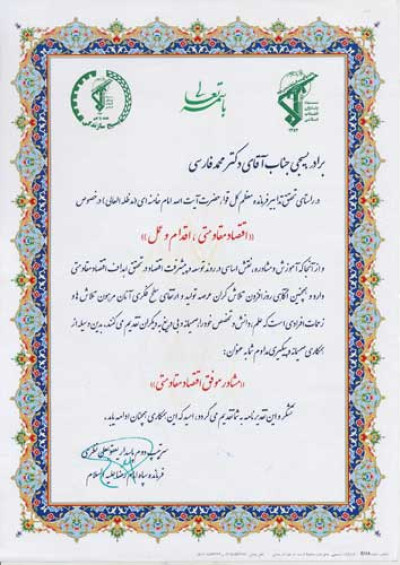 باسمه تعالی
برادر بسیجی جناب آقای دکتر محمد فارسی
در راستای تحقق تدابیر فرمانده معظم کل قوا، حضرت آیت الله امام خامنه ای (مدظله العالی) در خصوص
«اقتصاد مقاومتی، اقدام و عمل»
و از آنجا که آموزش و مشاوره، نقش اساسی در روند توسعه و پیشرفت اقتصاد در تحقق اهداف اقتصاد مقاومتی
دارد و همچنین آگاهی روز افزون تلاش گران عرصه تولید و ارتقای سطح فکری آنان مرهون تلاش ها و
زحمات افرادی است که علم، دانش و تخصص خود را صمیمانه و بی دریغ به دیگران تقدیم می کنند، بدین وسیله از
همکاری صمیمانه و پیگیری مداوم شما به عنوان:
«مشاور موفق اقتصاد مقاومتی»
تشکر و این تقدیرنامه به شما تقدیم می گردد، امید که این همکاری همچنان ادامه یابد.
سرتیپ دوم پاسدار یعقوبعلی نظری
فرمانده سپاه امام رضا علیه السلام